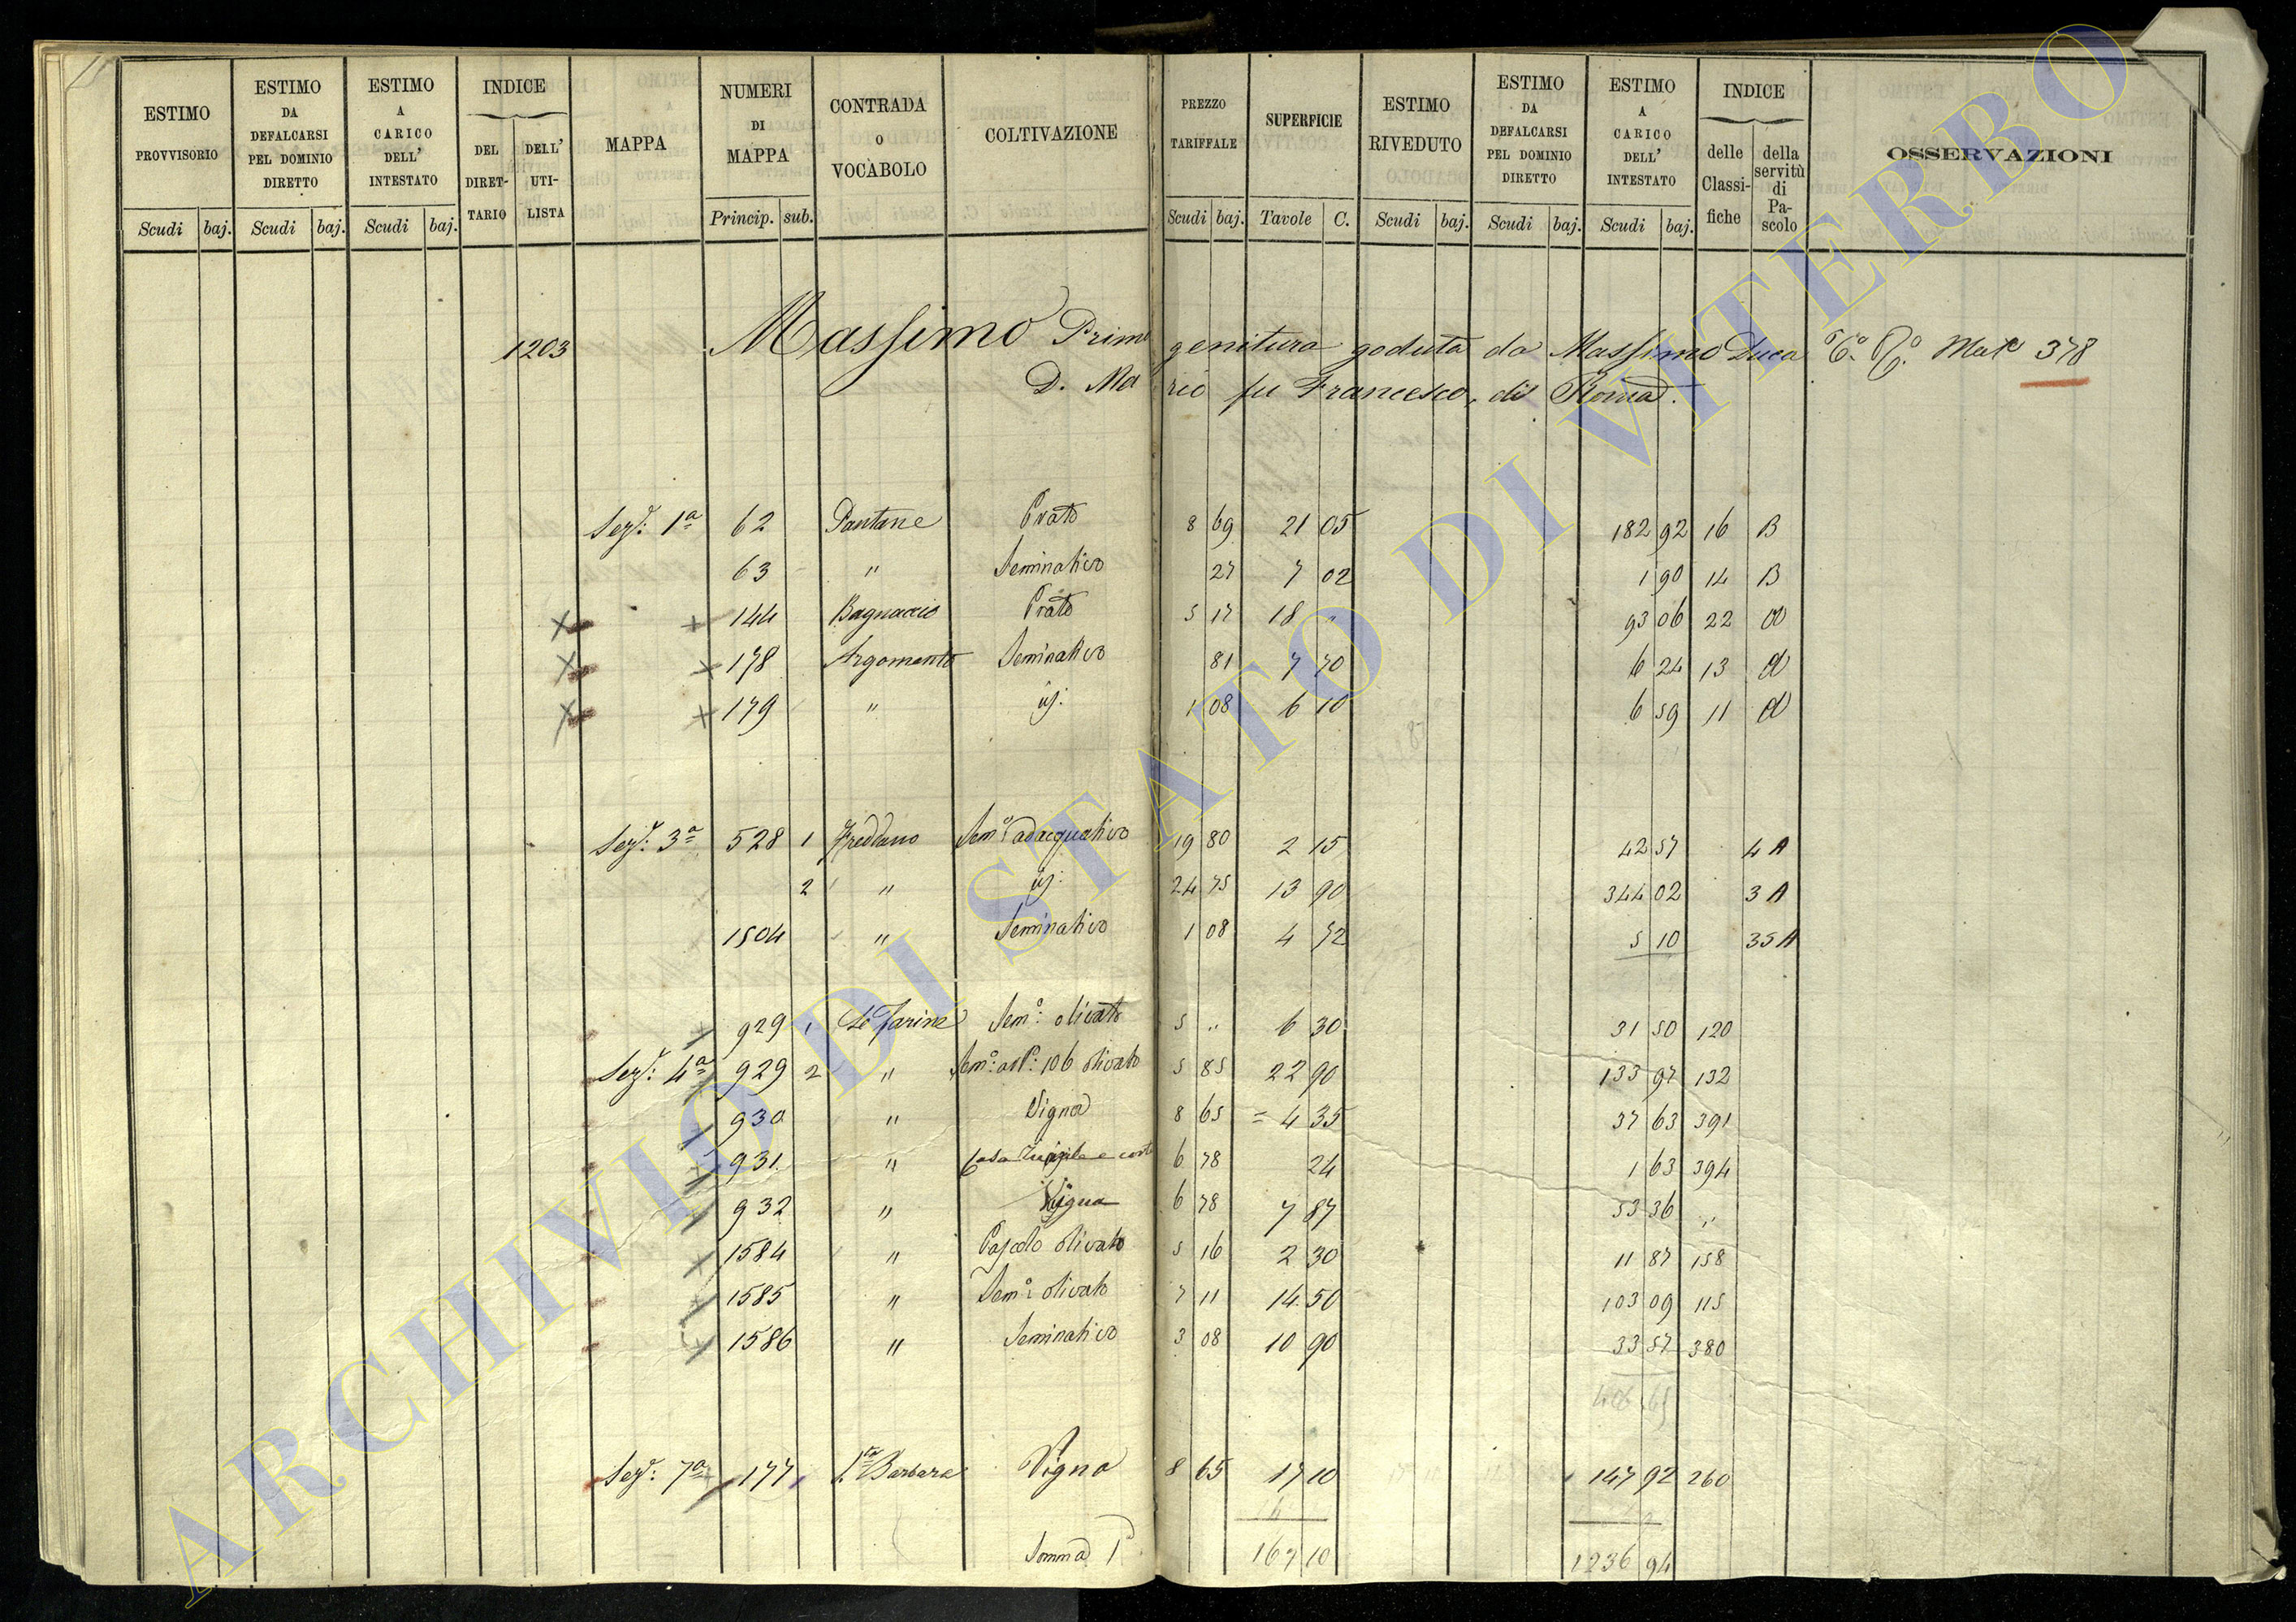 ESTIMO PROVVISORIO Scudi baj.
ESTIMO DA DEFALCARSI PEL DOMINIO DIRETTO Scudi baj.
ESTIMO A CARICO DELL' INTESTATO Scudi baj.
INDICE DEL DIRET-TARIO DELL' UTI-LISTA
MAPPA
NUMERI DI MAPPA Princip. sub.
CONTRADA O VOCABOLO
COLTIVAZIONE
PREZZO TARIFFALE Scudi baj.
SUPERFICIE Tavole C.
ESTIMO RIVEDUTO Scudi baj.
ESTIMO DA DEFALCARSI PEL DOMINIO DIRETTO Scudi baj.
ESTIMO A CARICO DELL' INTESTATO Scudi baj.
INDICE delle Classi-fiche della servitù di Pa-scolo
OSSERVAZIONI
1203 Massimo Primogenitura goduta da Massimo Duca 378
D. Mario fu Francesco, di Roma.
Sez: 1ª 62 Pantane Prato 8 69 21 05 182 92 16 B
63 " Seminativo 27 7 02 1 90 14 B
144 Bagnaccio Prato 5 17 18 " 93 06 22 A
178 Argomento Seminativo 81 7 70 6 24 13 A
179 " id: 1 08 6 10 6 59 11 A
Sez: 3ª 528 1 Freddano Semº adacquativo 19 80 2 15 42 57 4 A
2 " id: 24 75 13 90 344 02 3 A
1504 " Seminativo 1 08 4 72 5 10 35 A
929 1 Le Farine Semº: olivato 5 " 6 30 31 50 120
Sez: 4ª 929 2 " Semº: olivato 5 85 22 90 133 97 132
930 " Vigna 8 65 = 4 35 37 63 391
931 " Casa e corte 6 78 24 1 63 394
932 " Vigna 6 78 7 87 53 36 "
1584 " Pascolo olivato 5 16 2 30 11 87 158
1585 " Semº: olivato 7 11 14 50 103 09 115
1586 " Seminativo 3 08 10 90 33 57 380
406 65
Sez: 7ª 177 Sta Barbara Vigna 8 65 17 10 147 92 260
Somma 167 10 1236 94
ARCHIVIO DI STATO DI VITERBO